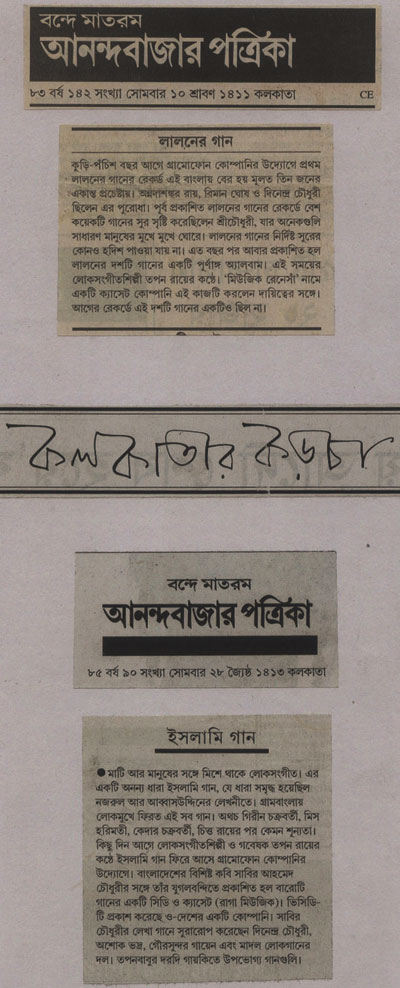 বন্দে মাতরম
আনন্দবাজার পত্রিকা
৮৩ বর্ষ ১৪২ সংখ্যা সোমবার ১০ শ্রাবণ ১৪১১ কলকাতা CE
লালনের গান
কুড়ি-পঁচিশ বছর আগে গ্রামোফোন কোম্পানির উদ্যোগে প্রথম
লালনের গানের রেকর্ড এই বাংলায় বের হয় মূলত তিন জনের
একান্ত প্রচেষ্টায়। অন্নদাশঙ্কর রায়, বিমান ঘোষ ও দিনেন্দ্র চৌধুরী
ছিলেন এর পুরোধা। পূর্ব প্রকাশিত লালনের গানের রেকর্ডে বেশ
কয়েকটি গানের সুর সৃষ্টি করেছিলেন শ্রীচৌধুরী, যার অনেকগুলি
সাধারণ মানুষের মুখে মুখে ঘোরে। লালনের গানের নির্দিষ্ট সুরের
কোনও হদিশ পাওয়া যায় না। এত বছর পর আবার প্রকাশিত হল
লালনের দশটি গানের একটি পূর্ণাঙ্গ অ্যালবাম। এই সময়ের
লোকসংগীতশিল্পী তপন রায়ের কণ্ঠে। 'মিউজিক রেনেসাঁ' নামে
একটি ক্যাসেট কোম্পানি এই কাজটি করলেন দায়িত্বের সঙ্গে।
আগের রেকর্ডে এই দশটি গানের একটিও ছিল না।
কলকাতার কড়চা
বন্দে মাতরম
আনন্দবাজার পত্রিকা
৮৫ বর্ষ ৯০ সংখ্যা সোমবার ২৮ জ্যৈষ্ঠ ১৪১৩ কলকাতা
ইসলামি গান
● মাটি আর মানুষের সঙ্গে মিশে থাকে লোকসংগীত। এর
একটি অনন্য ধারা ইসলামি গান, যে ধারা সমৃদ্ধ হয়েছিল
নজরুল আর আব্বাসউদ্দিনের লেখনীতে। গ্রামবাংলায়
লোকমুখে ফিরত এই সব গান। অথচ গিরীন চক্রবর্তী, মিস
হরিমতী, কেদার চক্রবর্তী, চিত্ত রায়ের পর কেমন শূন্যতা।
কিছু দিন আগে লোকসংগীতশিল্পী ও গবেষক তপন রায়ের
কণ্ঠে ইসলামি গান ফিরে আসে গ্রামোফোন কোম্পানির
উদ্যোগে। বাংলাদেশের বিশিষ্ট কবি সাবির আহমেদ
চৌধুরীর সঙ্গে তাঁর যুগলবন্দিতে প্রকাশিত হল বারোটি
গানের একটি সিডি ও ক্যাসেট (রাগা মিউজিক)। ভিসিডি-
টি প্রকাশ করেছে ও-দেশের একটি কোম্পানি। সাবির
চৌধুরীর লেখা গানে সুরারোপ করেছেন দিনেন্দ্র চৌধুরী,
অশোক ভদ্র, গৌরসুন্দর গায়েন এবং মাদল লোকগানের
দল। তপনবাবুর দরদি গায়কিতে উপভোগ্য গানগুলি।